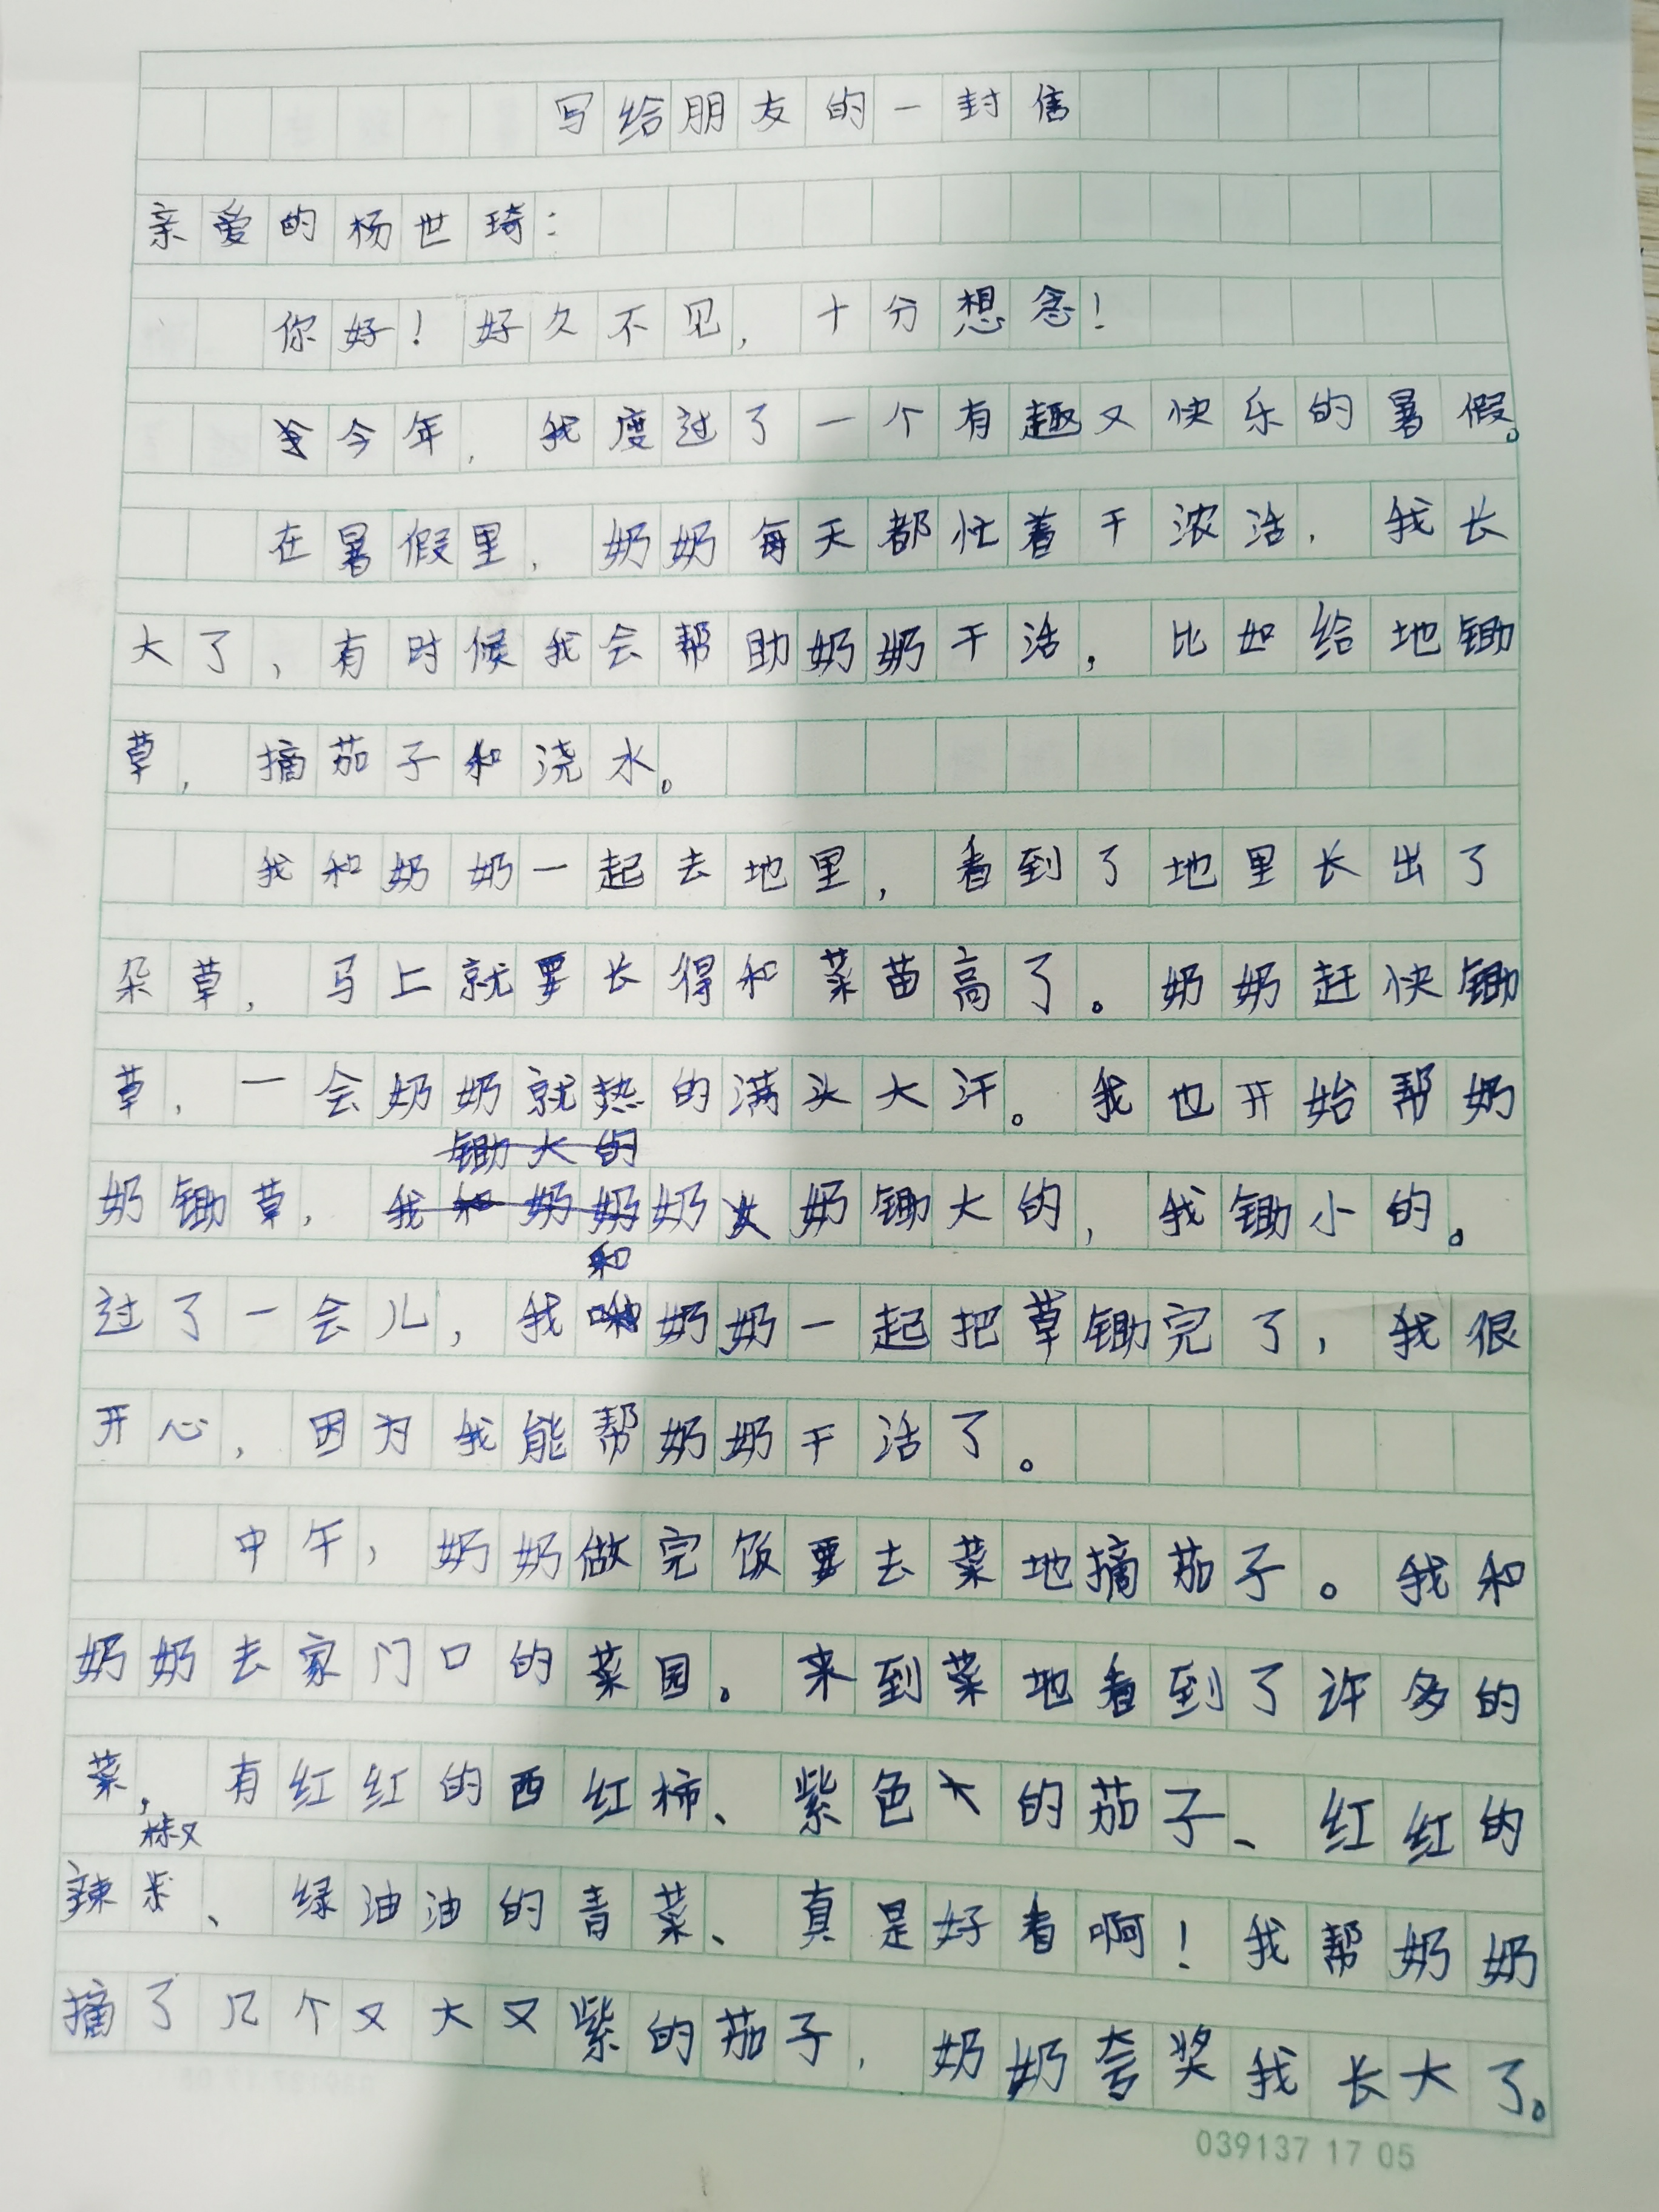 写给朋友的一封信
亲爱的杨世琦：
你好！好久不见，十分想念！
今年，我度过了一个有趣又快乐的暑假。
在暑假里，奶奶每天都忙着干浓活，我长
大了，有时候我会帮助奶奶干活，比如给地锄
草，摘茄子和浇水。
我和奶奶一起去地里，看到了地里长出了
朵草，马上就要长得和菜苗高了。奶奶赶快锄
草，一会奶奶就热的满头大汗。我也开始帮奶
奶锄草，奶奶锄大的，我锄小的。
过了一会儿，我和奶奶一起把草锄完了，我很
开心，因为我能帮奶奶干活了。
中午，奶奶做完饭要去菜地摘茄子。我和
奶奶去家门口的菜园。来到菜地看到了许多的
菜，有红红的西红柿、紫色的茄子、红红的
辣椒、绿油油的青菜、真是好看啊！我帮奶奶
摘了几个又大又紫的茄子，奶奶夸奖我长大了。
039137 17 05